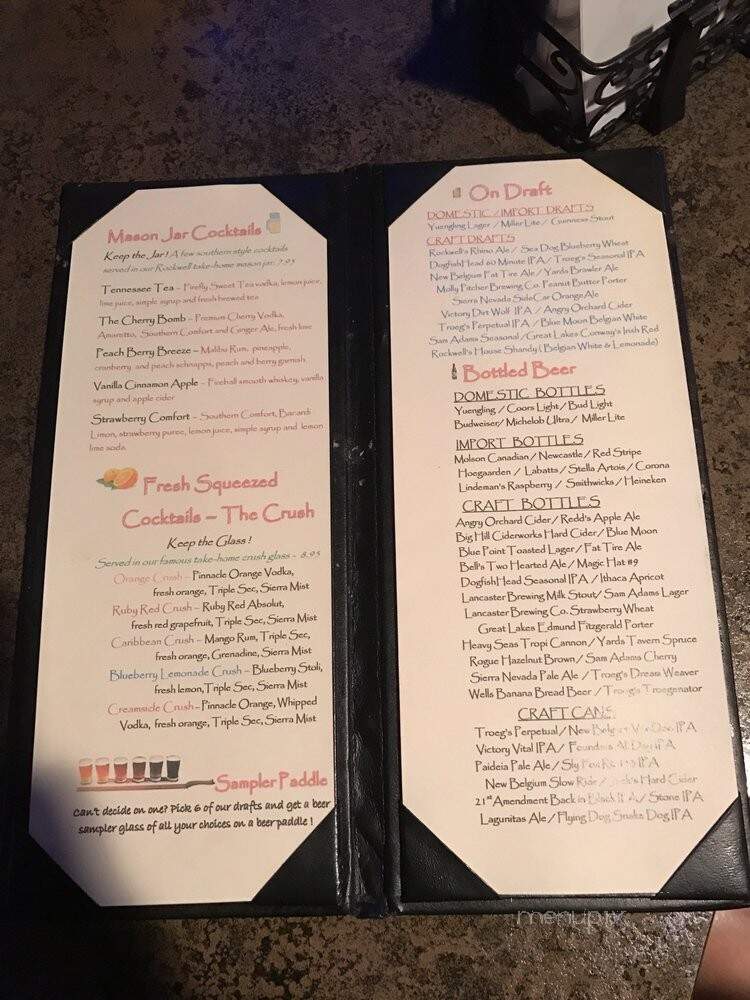 Mason Jar Cocktails
Keep the Jar! A few southern style cocktails
served in our Rockwell take-home mason jar. 7.95
Tennessee Tea – Firefly Sweet Tea vodka, lemon juice,
lime juice, simple syrup and fresh brewed tea
The Cherry Bomb – Premium Cherry Vodka,
Amaretto, Southern Comfort and Ginger Ale, fresh lime
Peach Berry Breeze – Malibu Rum, pineapple,
cranberry and peach schnapps, peach and berry garnish.
Vanilla Cinnamon Apple – Fireball smooth whiskey, vanilla
syrup and apple cider
Strawberry Comfort – Southern Comfort, Bacardi
Limon, strawberry puree, lemon juice, simple syrup and lemon
lime soda.
Fresh Squeezed
Cocktails – The Crush
Keep the Glass !
Served in our famous take-home crush glass – 8.95
Orange Crush – Pinnacle Orange Vodka,
fresh orange, Triple Sec, Sierra Mist
Ruby Red Crush – Ruby Red Absolut,
fresh red grapefruit, Triple Sec, Sierra Mist
Caribbean Crush – Mango Rum, Triple Sec,
fresh orange, Grenadine, Sierra Mist
Blueberry Lemonade Crush – Blueberry Stoli,
fresh lemon, Triple Sec, Sierra Mist
Creamside Crush – Pinnacle Orange, Whipped
Vodka, fresh orange, Triple Sec, Sierra Mist
Sampler Paddle
Can't decide on one? Pick 6 of our drafts and get a beer
sampler glass of all your choices on a beer paddle !
On Draft
DOMESTIC / IMPORT DRAFTS
Yuengling Lager / Miller Lite / Guinness Stout
CRAFT DRAFTS
Rockwell's Rhino Ale / Sea Dog Blueberry Wheat
DogfishHead 60 Minute IPA / Troeg's Seasonal IPA
New Belgium Fat Tire Ale / Yards Brawler Ale
Molly Pitcher Brewing Co. Peanut Butter Porter
Sierra Nevada SideCar Orange Ale
Victory Dirt Wolf IPA / Angry Orchard Cider
Troeg's Perpetual IPA / Blue Moon Belgian White
Sam Adams Seasonal / Great Lakes Conway's Irish Red
Rockwell's House Shandy ( Belgian White & Lemonade)
Bottled Beer
DOMESTIC BOTTLES
Yuengling / Coors Light / Bud Light
Budweiser/ Michelob Ultra / Miller Lite
IMPORT BOTTLES
Molson Canadian / Newcastle / Red Stripe
Hoegaarden / Labatts / Stella Artois / Corona
Lindeman's Raspberry / Smithwicks / Heineken
CRAFT BOTTLES
Angry Orchard Cider/ Redd's Apple Ale
Big Hill Ciderworks Hard Cider/ Blue Moon
Blue Point Toasted Lager / Fat Tire Ale
Bell's Two Hearted Ale / Magic Hat #9
DogfishHead Seasonal IPA / Ithaca Apricot
Lancaster Brewing Milk Stout/ Sam Adams Lager
Lancaster Brewing Co. Strawberry Wheat
Great Lakes Edmund Fitzgerald Porter
Heavy Seas Tropi Cannon / Yards Tavern Spruce
Rogue Hazelnut Brown / Sam Adams Cherry
Sierra Nevada Pale Ale / Troeg's Dream Weaver
Wells Banana Bread Beer / Troeg's Troegenator
CRAFT CANS
Troeg's Perpetual / New Belgium IPA
Victory Vital IPA / Founders All Day IPA
Paideia Pale Ale / Sly Fox IPA
New Belgium Slow Ride / Jack's Hard Cider
21st Amendment Back in Black IPA / Stone IPA
Lagunitas Ale / Flying Dog Snake Dog IPA
menupix